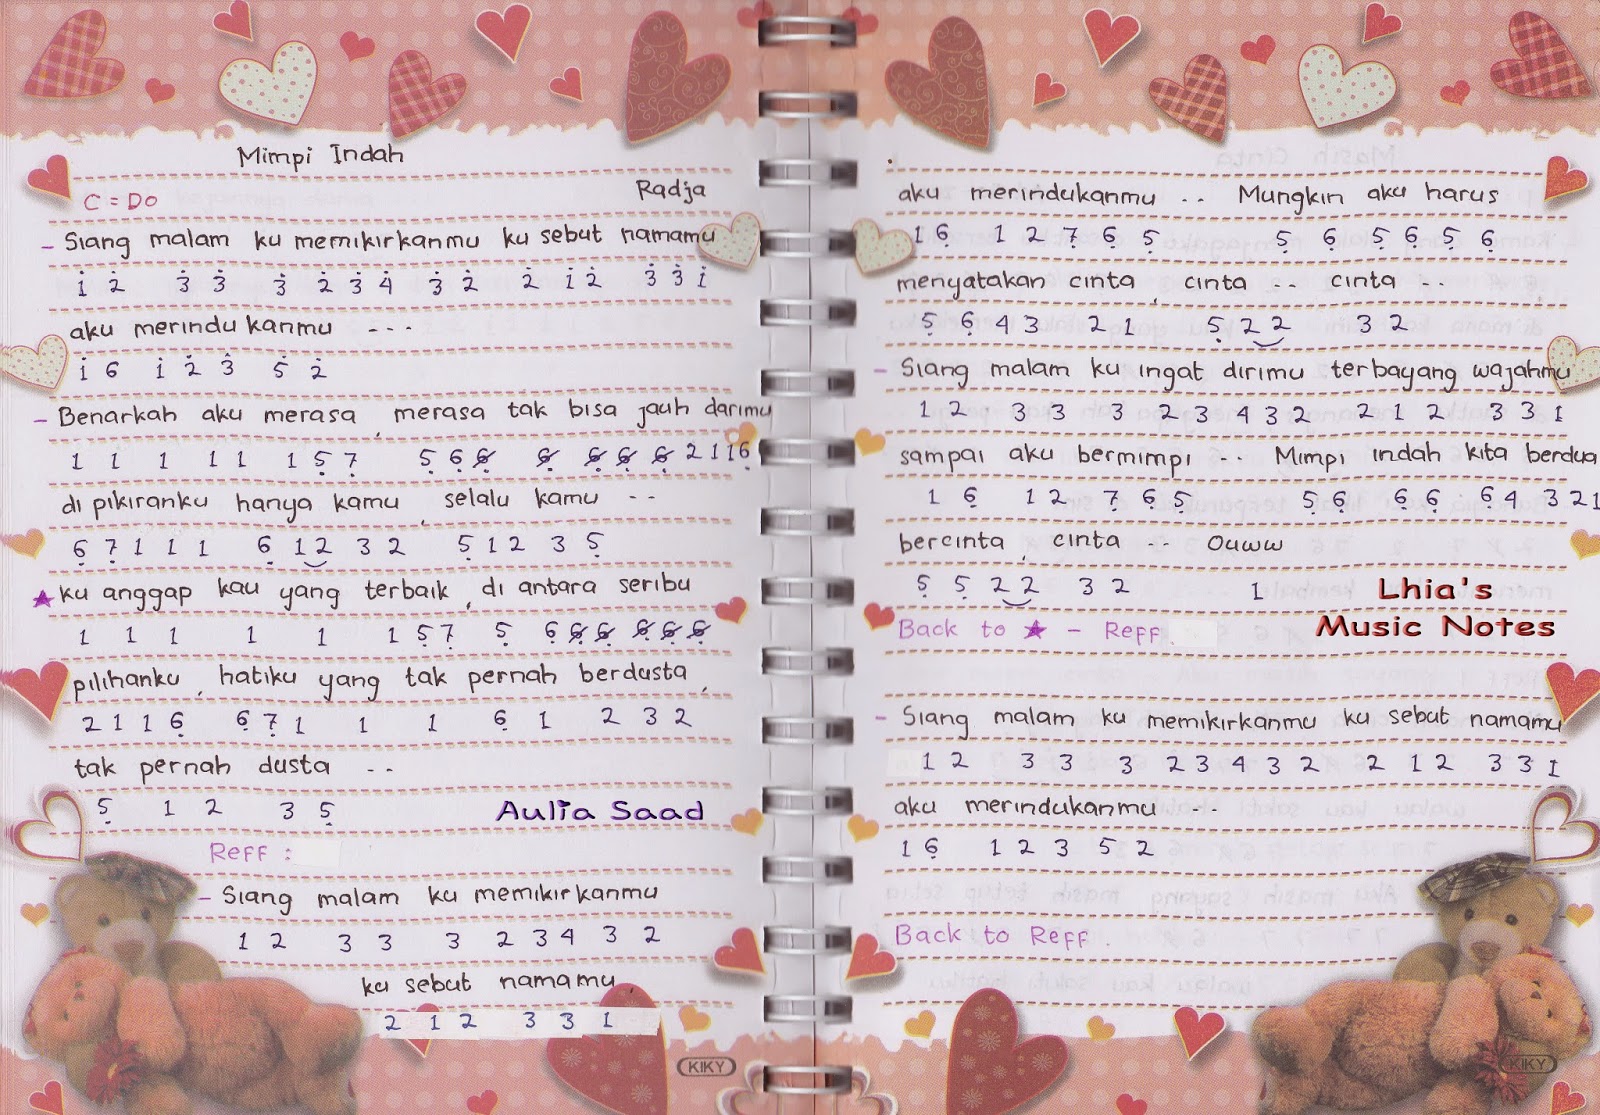 Mimpi Indah
C = Do
Radja
- Siang malam ku memikirkanmu ku sebut namamu
1̇ 2̇ 3̇ 3̇ 3̇ 2̇ 3̇ 4̇ 3̇ 2̇ 2̇ 1̇ 2̇ 3̇ 3̇ 1̇
aku merindukanmu ---
1̇ 6 1̇ 2̇ 3̇ 5̇ 2̇
- Benarkah aku merasa, merasa tak bisa jauh darimu
1 1 1 1 1 1 5̣ 7̣ 5̣ 6̣ 6̣ 6̣ 6̣ 6̣ 6̣ 2 1 1 6̣
di pikiranku hanya kamu, selalu kamu --
6̣ 7̣ 1 1 1 6̣ 1 2 3 2 5̣ 1 2 3 5̣
★ ku anggap kau yang terbaik, di antara seribu
1 1 1 1 1 1 5̣ 7̣ 5̣ 6̣ 6̣ 6̣ 6̣ 6̣ 6̣
pilihanku, hatiku yang tak pernah berdusta,
2 1 1 6̣ 6̣ 7̣ 1 1 1 6̣ 1 2 3 2
tak pernah dusta --
5̣ 1 2 3 5̣
Aulia Saad
Reff :
- Siang malam ku memikirkanmu
1 2 3 3 3 2 3 4 3 2
ku sebut namamu,
2 1 2 3 3 1
KIKY
aku merindukanmu -- Mungkin aku harus
1 6̣ 1 2 7̣ 6̣ 5̣ 5̣ 6̣ 5̣ 6̣ 5̣ 6̣
menyatakan cinta, cinta -- cinta --
5̣ 6̣ 4 3 2 1 5̣ 2 2 3 2
- Siang malam ku ingat dirimu terbayang wajahmu
1 2 3 3 3 2 3 4 3 2 2 1 2 3 3 1
sampai aku bermimpi -- Mimpi indah kita berdua
1 6̣ 1 2 7̣ 6̣ 5̣ 5̣ 6̣ 6̣ 6̣ 6̣ 4 3 2 1
bercinta, cinta -- Ouww
5̣ 5̣ 2 2 3 2 1
Lhia's
Music Notes
Back to ★ - Reff.
- Siang malam ku memikirkanmu ku sebut namamu
1 2 3 3 3 2 3 4 3 2 2 1 2 3 3 1
aku merindukanmu ---
1 6̣ 1 2 3 5 2
Back to Reff.
KIKY